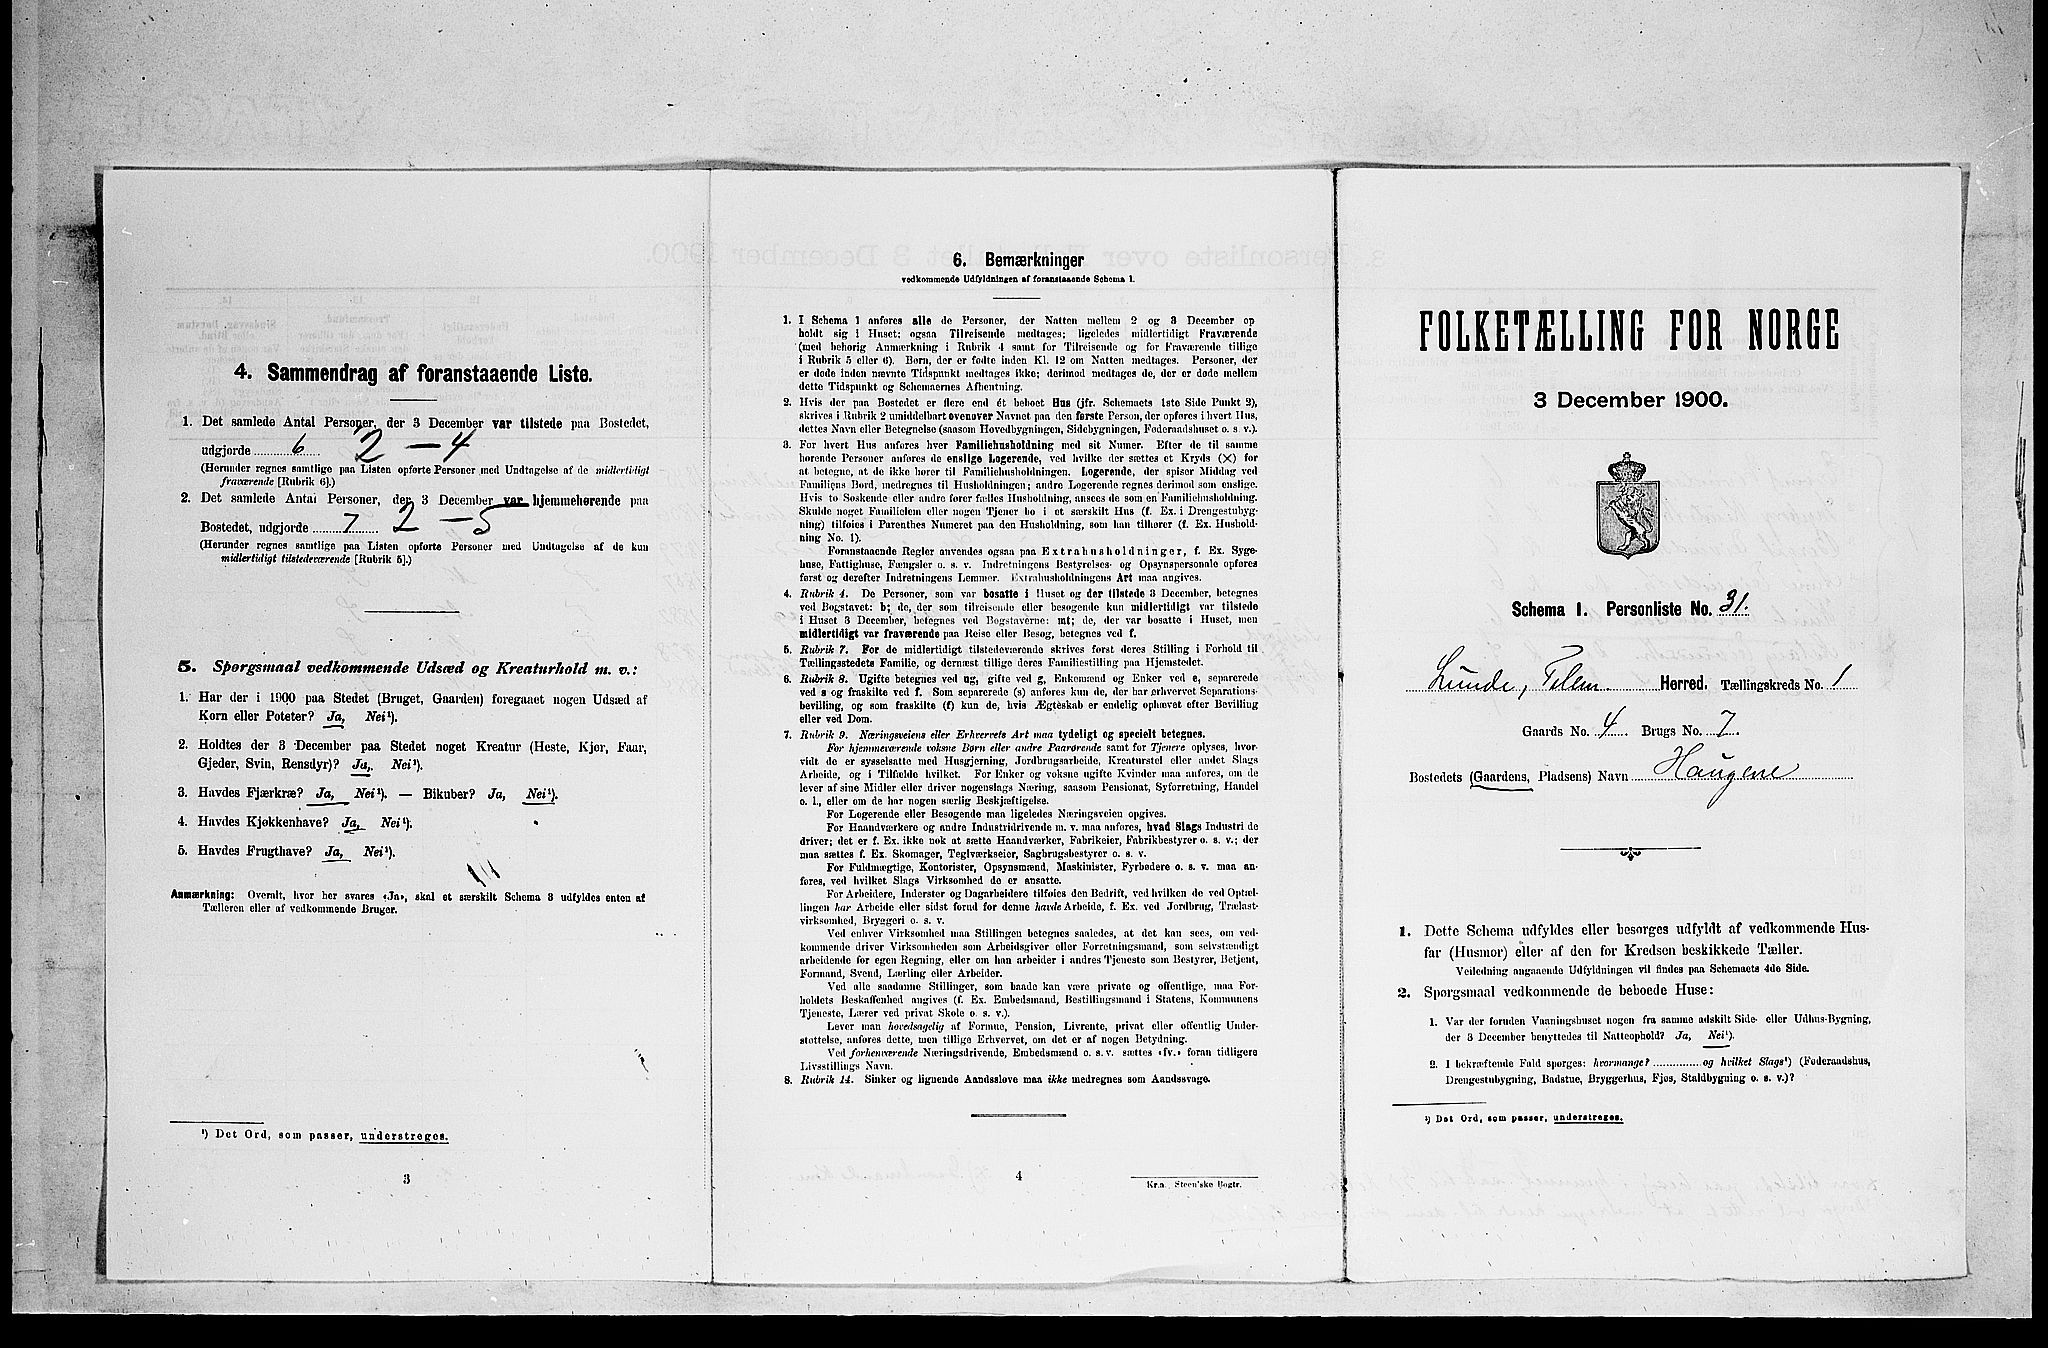 4. Sammendrag af foranstaaende Liste.
1. Det samlede Antal Personer, der 3 December var tilstede paa Bostedet,
udgjorde 6 2 – 4
(Herunder regnes samtlige paa Listen opførte Personer med Undtagelse af de midlertidigt
fraværende [Rubrik 6].)
2. Det samlede Antal Personer, der 3 December var hjemmehørende paa
Bostedet, udgjorde 7 2 – 5
(Herunder regnes samtlige paa Listen opførte Personer med Undtagelse af de kun
midlertidigt tilstedeværende [Rubrik 5].)
5. Spørgsmaal vedkommende Udsæd og Kreaturhold m. v.:
1. Har der i 1900 paa Stedet (Bruget, Gaarden) foregaaet nogen Udsæd af
Korn eller Poteter? Ja, Nei¹).
2. Holdtes der 3 December paa Stedet noget Kreatur (Heste, Kjør, Faar,
Gjeder, Svin, Rensdyr)? Ja, Nei¹).
3. Havdes Fjærkræ? Ja, Nei¹). — Bikuber? Ja, Nei¹).
4. Havdes Kjøkkenhave? Ja, Nei¹).
5. Havdes Frugthave? Ja, Nei¹).
Anmærkning: Overalt, hvor her svares «Ja», skal et særskilt Schema 3 udfyldes enten af
Tælleren eller af vedkommende Bruger.
¹) Det Ord, som passer, understreges.
3
6. Bemærkninger
vedkommende Udfyldningen af foranstaaende Schema 1.
1. I Schema 1 anføres alle de Personer, der Natten mellem 2 og 3 December op
holdt sig i Huset; ogsaa Tilreisende medtages; ligeledes midlertidigt Fraværende
(med behørig Anmærkning i Rubrik 4 samt for Tilreisende og for Fraværende tillige
i Rubrik 5 eller 6). Børn, der er fødte inden Kl. 12 om Natten medtages. Personer, der
er døde inden nævnte Tidspunkt medtages ikke; derimod medtages de, der er døde mellem
dette Tidspunkt og Schemaernes Afhentning.
2. Hvis der paa Bostedet er flere end ét beboet Hus (jfr. Schemaets 1ste Side Punkt 2),
skrives i Rubrik 2 umiddelbart ovenover Navnet paa den første Person, der opføres i hvert Hus,
dettes Navn eller Betegnelse (saasom Hovedbygningen, Sidebygningen, Føderaadshuset o. s. v.).
3. For hvert Hus anføres hver Familiehusholdning med sit Numer. Efter de til samme
hørende Personer anføres de enslige Logerende, ved hvilke der sættes et Kryds (×) for
at betegne, at de ikke hører til Familiehusholdningen. Logerende, der spiser Middag ved
Familiens Bord, medregnes til Husholdningen; andre Logerende regnes derimod som enslige.
Hvis to Søskende eller andre fører fælles Husholdning, ansees de som en Familiehusholdning.
Skulde noget Familielem eller nogen Tjener bo i et særskilt Hus (f. Ex. i Drengestubyg-
ning) tilføies i Parenthes Numeret paa den Husholdning, som han tilhører (f. Ex. Hushold-
ning No. 1).
Foranstaaende Regler anvendes ogsaa paa Extrahusholdninger, f. Ex. Syge-
huse, Fattighuse, Fængsler o. s. v. Indretningens Bestyrelses- og Opsynspersonale opføres
først og derefter Indretningens Lemmer. Extrahusholdningens Art maa angives.
4. Rubrik 4. De Personer, som var bosatte i Huset og der tilstede 3 December, betegnes
ved Bogstavet: b; de, der som tilreisende eller besøgende kun midlertidigt var tilstede
i Huset 3 December, betegnes ved Bogstaverne: mt; de, der var bosatte i Huset, men
midlertidigt var fraværende paa Reise eller Besøg, betegnes ved f.
5. Rubrik 7. For de midlertidigt tilstedeværende skrives først deres Stilling i Forhold til
Tællingsstedets Familie, og dernæst tillige deres Familiestilling paa Hjemstedet.
6. Rubrik 8. Ugifte betegnes ved ug, gifte ved g, Enkemænd og Enker ved e, separerede
ved s og fraskilte ved f. Som separerede (s) anføres kun de, der har erhvervet Separations-
bevilling, og som fraskilte (f) kun de, hvis Ægteskab er endelig ophævet efter Bevilling
eller ved Dom.
7. Rubrik 9. Næringsveiens eller Erhvervets Art maa tydeligt og specielt betegnes.
For hjemmeværende voksne Børn eller andre Paarørende samt for Tjenere oplyses, hvor-
vidt de er sysselsatte med Husgjerning, Jordbrugsarbeide, Kreaturstel eller andet Slags
Arbeide, og i Tilfælde hvilket. For Enker og voksne ugifte Kvinder maa anføres, om de
lever af sine Midler eller driver nogenslags Næring, saasom Pensionat, Syforretning, Handel
o. l., eller om de har nogen særlig Beskjæftigelse.
For Logerende eller Besøgende maa ligeledes Næringsveien opgives.
For Haandværkere og andre Industridrivende m. v. maa anføres, hvad Slags Industri de
driver; det er f. Ex. ikke nok at sætte Haandværker, Fabrikeier, Fabrikbestyrer o. s. v.; der
maa sættes f. Ex. Skomager, Teglværkseier, Sagbrugsbestyrer o. s. v.
For Fuldmægtige, Kontorister, Opsynsmænd, Maskinister, Fyrbødere o. s. v. maa an-
føres, ved hvilket Slags Virksomhed de er ansatte.
For Arbeidere, Inderster og Dagarbeidere tilføies den Bedrift, ved hvilken de ved Optæl-
lingen har Arbeide eller sidst forud for denne havde Arbeide, f. Ex. ved Jordbrug, Trælast-
virksomhed, Bryggeri o. s. v.
Ved enhver Virksomhed maa Stillingen betegnes saaledes, at det kan sees, om ved-
kommende driver Virksomheden som Arbeidsgiver eller Forretningsmand, som selvstændigt
arbeidende for egen Regning, eller om han arbeider i andres Tjeneste som Bestyrer, Betjent,
Formand, Svend, Lærling eller Arbeider.
Ved alle saadanne Stillinger, som baade kan være private og offentlige, maa For-
holdets Beskaffenhed angives (f. Ex. Embedsmand, Bestillingsmand i Statens, Kommunens
Tjeneste, Lærer ved privat Skole o. s. v.).
Lever man hovedsagelig af Formue, Pension, Livrente, privat eller offentlig Under-
støttelse, anføres dette, men tillige Erhvervet, om det er af nogen Betydning.
Ved forhenværende Næringsdrivende, Embedsmænd o. s. v. sættes «fv.» foran tidligere
Livsstillings Navn.
8. Rubrik 14. Sinker og lignende Aandssløve maa ikke medregnes som Aandssvage.
4
Kr.a. Steen'ske Bogtr.
FOLKETÆLLING FOR NORGE
3 December 1900.
Schema 1. Personliste No. 31.
Lunde, Telem. Herred. Tællingskreds No. 1
Gaards No. 4. Brugs No. 7.
Bostedets (Gaardens, Pladsens) Navn Haugene
1. Dette Schema udfyldes eller besørges udfyldt af vedkommende Hus-
far (Husmor) eller af den for Kredsen beskikkede Tæller.
Veiledning angaaende Udfyldningen vil findes paa Schemaets 4de Side.
2. Spørgsmaal vedkommende de beboede Huse:
1. Var der foruden Vaaningshuset nogen fra samme adskilt Side- eller Udhus-Bygning,
der 3 December benyttedes til Natteophold? Ja, Nei¹).
2. I bekræftende Fald spørges: hvormange? og hvilket Slags¹) (Føderaadshus,
Drengestubygning, Badstue, Bryggerhus, Fjøs, Staldbygning o. s. v.)?
¹) Det Ord, som passer, understreges.